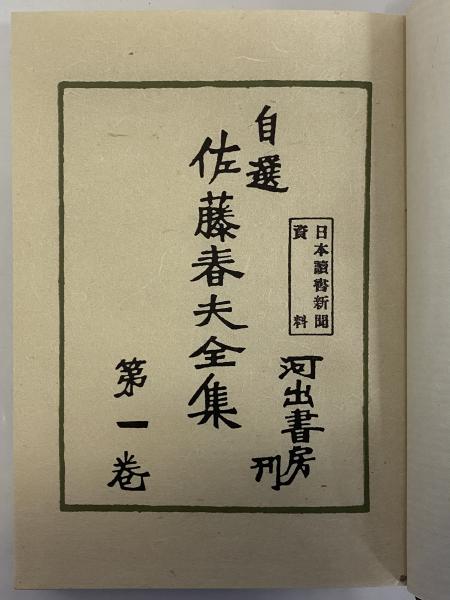 自選
佐藤春夫全集
第一巻
日本讀書新聞
資料
河出書房刊